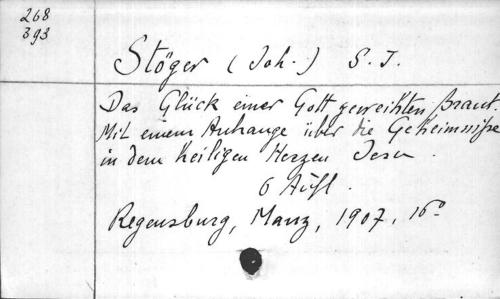 268
393
Stöger (Joh.) S. J.
Das Glück einer Gott geweihten Braut.
Mit einem Anhange über die Geheimnisse
in dem heiligen Herzen Jesu.
6 Aufl.
Regensburg, Manz, 1907. 16°